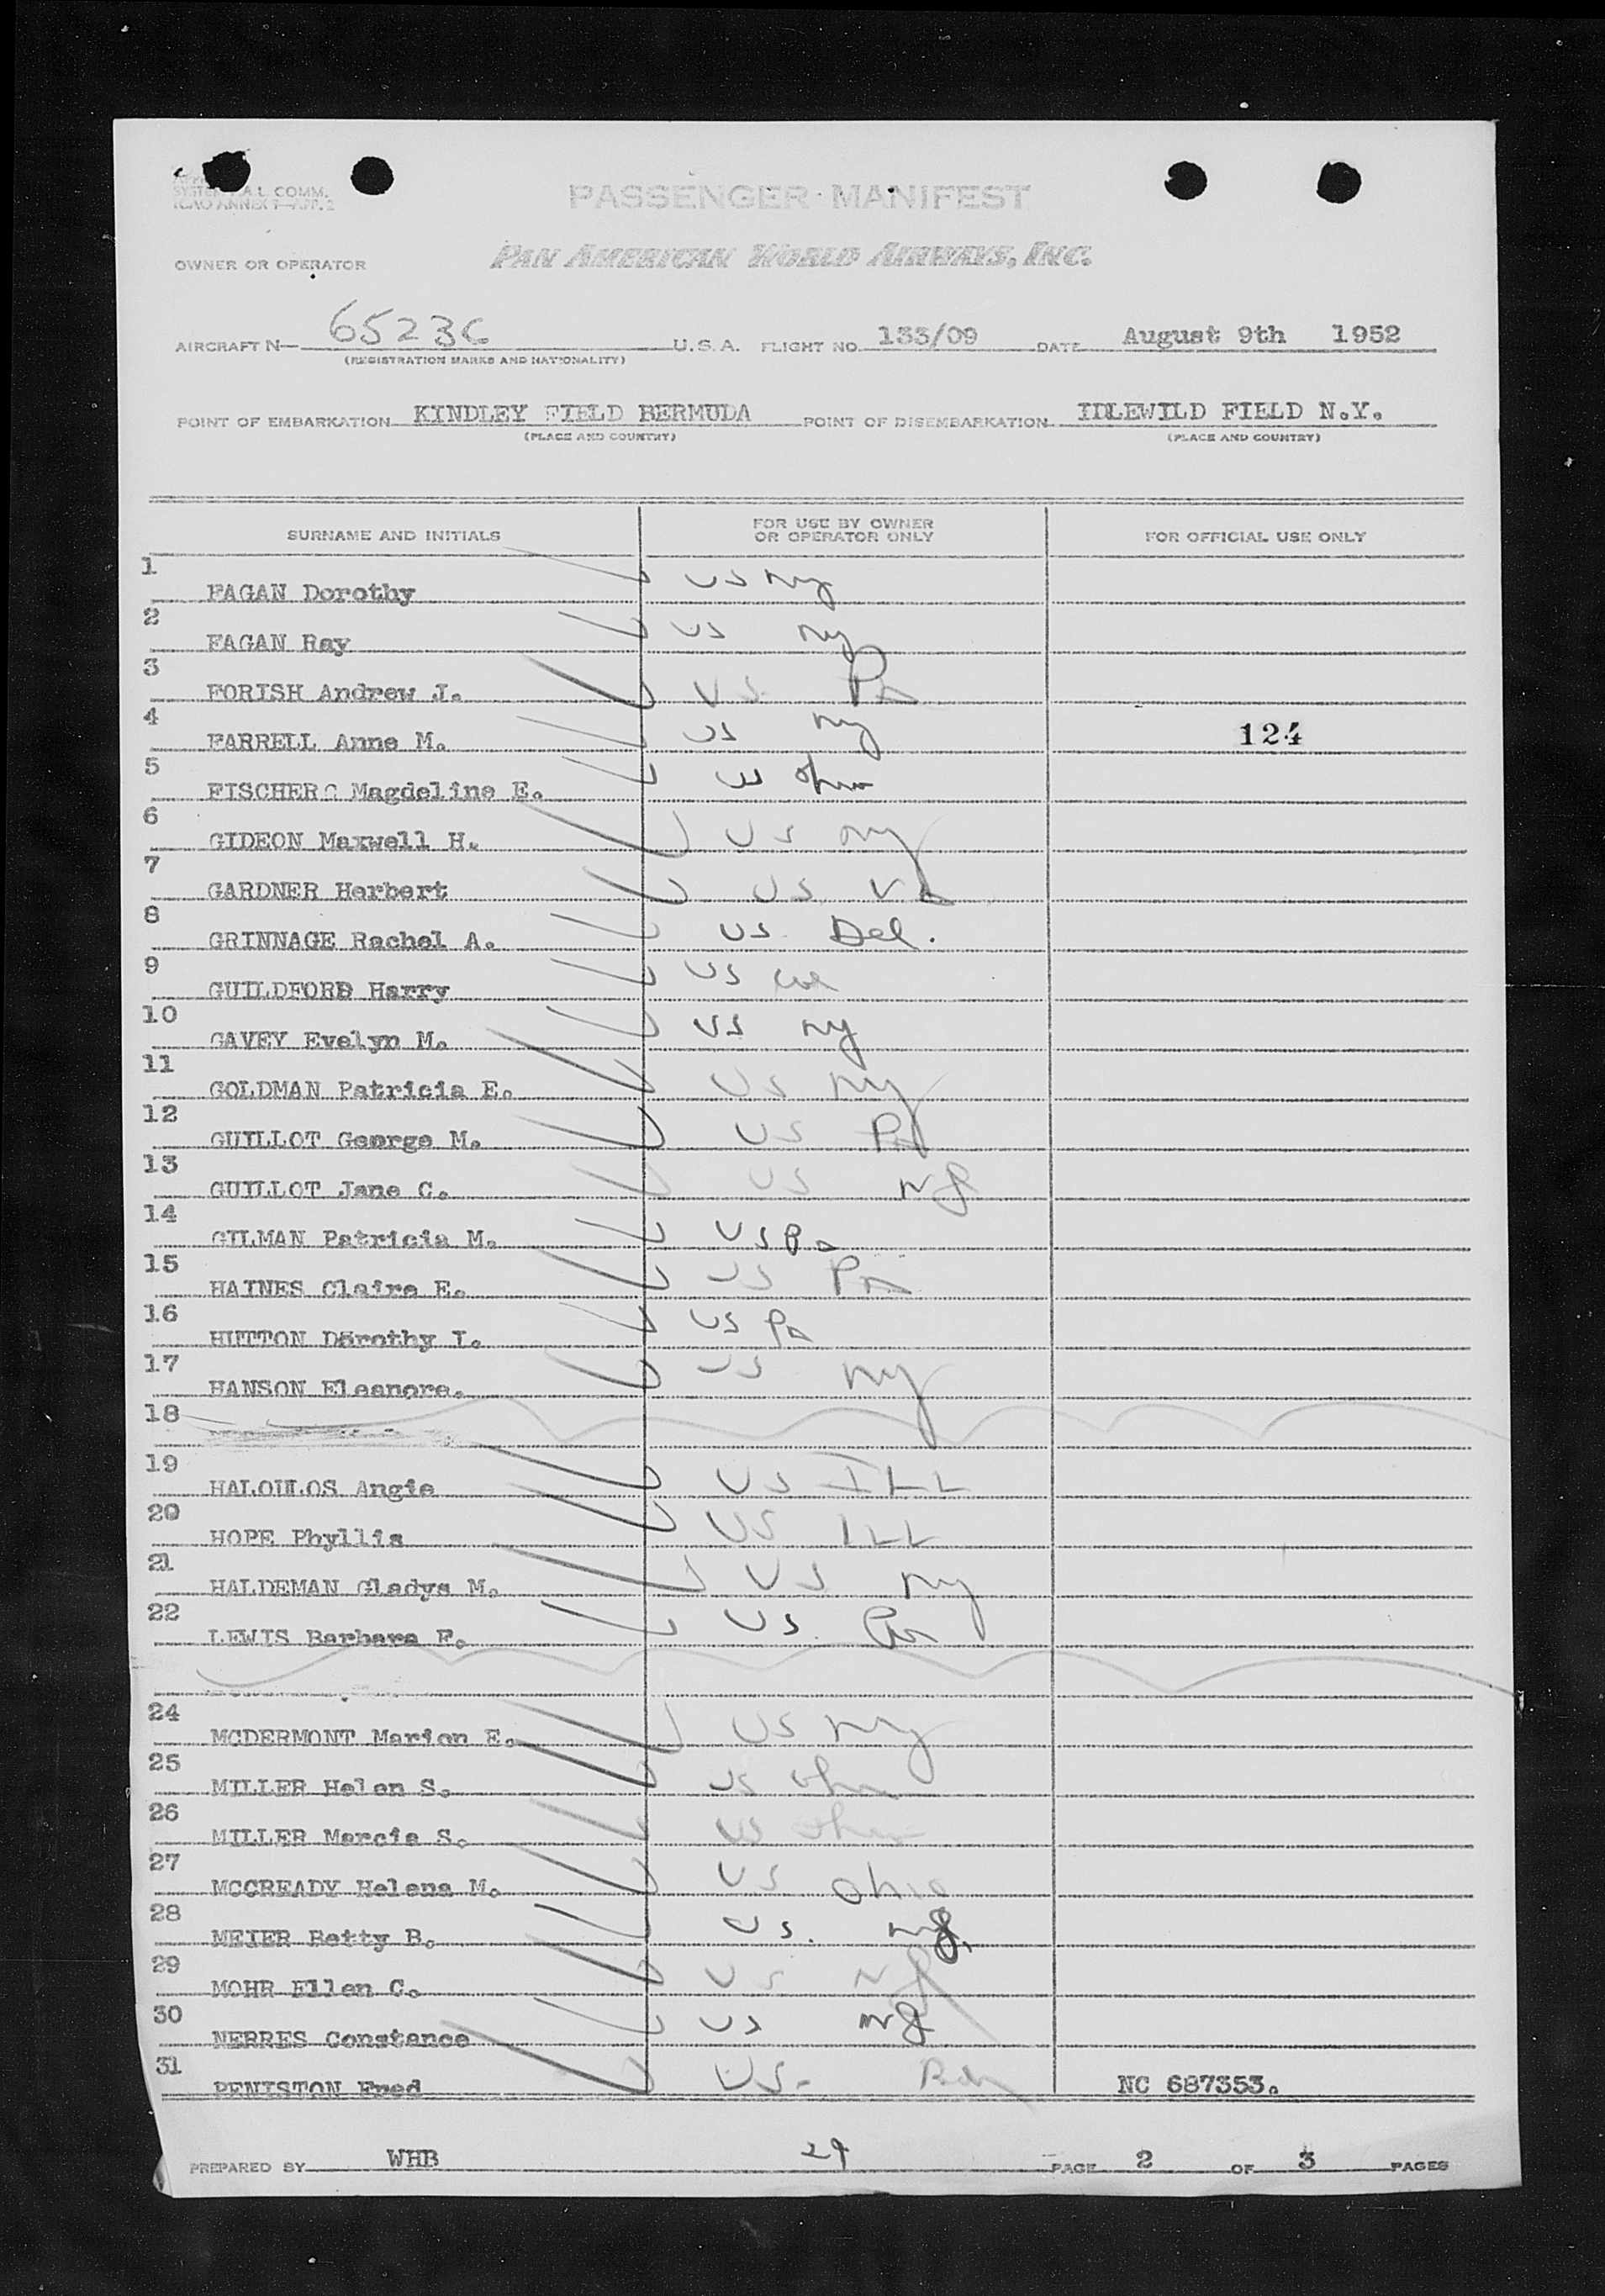 SYSTEM A.L. COMM.
ICAO ANNEX 9—APP. 2
PASSENGER MANIFEST
OWNER OR OPERATOR PAN AMERICAN WORLD AIRWAYS, INC.
AIRCRAFT N— 65236 U.S.A. FLIGHT NO. 133/09 DATE August 9th 1952
(REGISTRATION MARKS AND NATIONALITY)
POINT OF EMBARKATION KINDLEY FIELD BERMUDA POINT OF DISEMBARKATION IDLEWILD FIELD N.Y.
(PLACE AND COUNTRY) (PLACE AND COUNTRY)
SURNAME AND INITIALS FOR USE BY OWNER OR OPERATOR ONLY FOR OFFICIAL USE ONLY
1 FAGAN Dorothy US NY
2 FAGAN Ray US NY
3 FORISH Andrew J. US Pa
4 FARRELL Anne M. US NY 124
5 FISCHER Magdeline E. US Ohio
6 GIDEON Maxwell H. US NY
7 GARDNER Herbert US Va
8 GRINNAGE Rachel A. US Del.
9 GUILDFORD Harry US
10 GAVEY Evelyn M. US NY
11 GOLDMAN Patricia E. US NY
12 GUILLOT George M. US Pa
13 GUILLOT Jane C. US NJ
14 GILMAN Patricia M. US Pa
15 HAINES Claire E. US Pa
16 HUTTON Dorothy I. US Pa
17 HANSON Eleanore. US NY
18
19 HALOULOS Angie US ILL
20 HOPE Phyllis US ILL
21 HALDEMAN Gladys M. US NY
22 LEWIS Barbara F. US Pa
24 MCDERMONT Marion E. US NY
25 MILLER Helen S. US Ohio
26 MILLER Marcia S. US Ohio
27 MCCREADY Helena M. US Ohio
28 MEIER Betty B. US. NJ
29 MOHR Ellen C. US NJ
30 NERRES Constance US NJ
31 PENISTON Fred US. NC 687353.
PREPARED BY WHB 29 PAGE 2 OF 3 PAGES